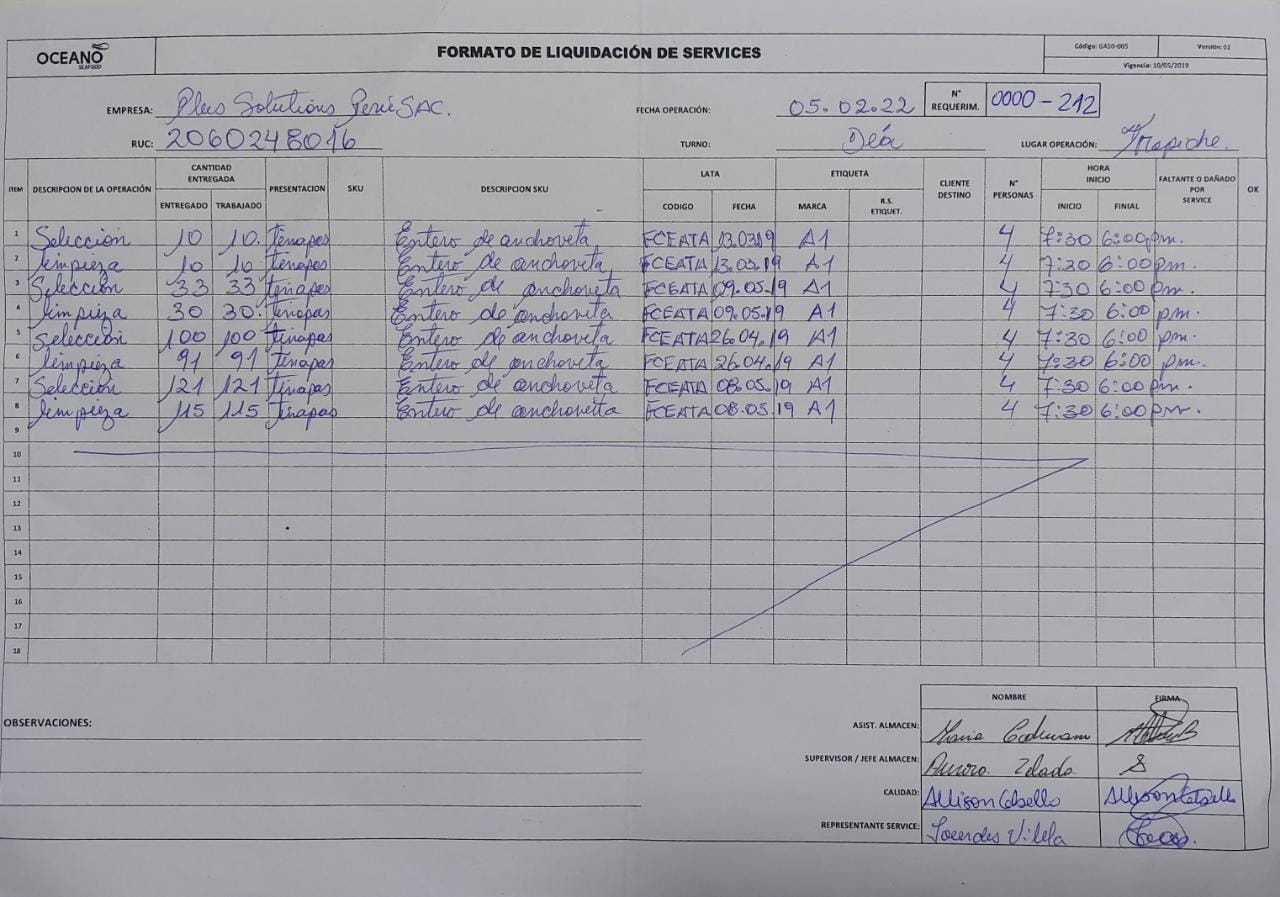 OCEANO
SEAFOOD
FORMATO DE LIQUIDACIÓN DE SERVICES
Código: GASG-005 Versión: 03
Vigencia: 10/05/2019
EMPRESA: Plus Solutions Perú SAC. FECHA OPERACIÓN: 05.02.22 N° REQUERIM. 0000-212
RUC: 2060248016 TURNO: Día LUGAR OPERACIÓN: Trapiche.
ITEM DESCRIPCION DE LA OPERACIÓN CANTIDAD ENTREGADA PRESENTACION SKU DESCRIPCION SKU LATA ETIQUETA CLIENTE DESTINO N° PERSONAS HORA INICIO FALTANTE O DAÑADO POR SERVICE OK
ENTREGADO TRABAJADO CODIGO FECHA MARCA R.S. ETIQUET. INICIO FINIAL
1 Selección 10 10. tinapas Entero de anchoveta FCEATA 13.0319 A1 4 7:30 6:00 pm.
2 limpieza 10 10 tinapas Entero de anchoveta FCEATA 13.03.19 A1 4 7:30 6:00 pm.
3 Selección 33 33 tinapas Entero de anchoveta FCEATA 09.05.19 A1 4 7:30 6:00 pm.
4 limpieza 30 30. tinapas Entero de anchoveta FCEATA 09.05.19 A1 4 7:30 6:00 pm.
5 Selección 100 100 tinapas Entero de anchoveta FCEATA 26.04.19 A1 4 7:30 6:00 pm.
6 limpieza 91 91 tinapas Entero de anchoveta FCEATA 26.04.19 A1 4 7:30 6:00 pm.
7 Selección 121 121 tinapas Entero de anchoveta FCEATA 08.05.19 A1 4 7:30 6:00 pm.
8 limpieza 115 115 tinapas Entero de anchoveta FCEATA 08.05.19 A1 4 7:30 6:00 pm.
9
10
11
12
13
14
15
16
17
18
NOMBRE FIRMA
OBSERVACIONES:
ASIST. ALMACEN: Maria
SUPERVISOR / JEFE ALMACEN: Aurora Zelada
CALIDAD: Allison Cabello Allison Cabello
REPRESENTANTE SERVICE: Lourdes Vilela